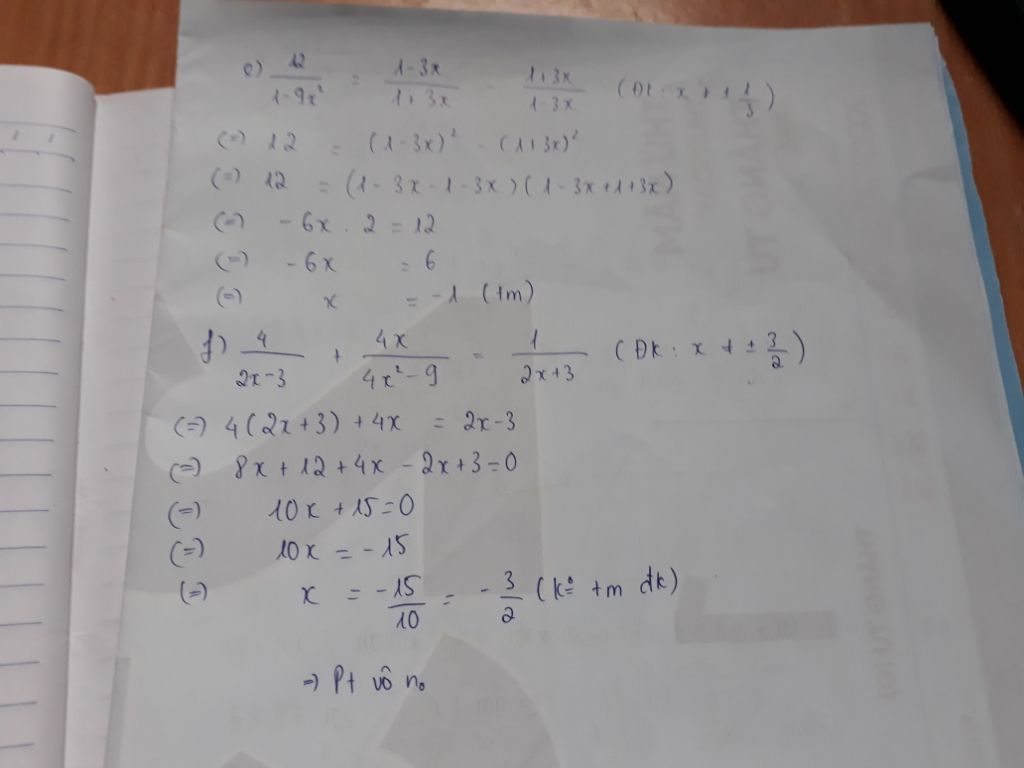 e) 12/(1-9x²) = (1-3x)/(1+3x) - (1+3x)/(1-3x) (ĐK: x ≠ ±1/3)
(=) 12 = (1-3x)² - (1+3x)²
(=) 12 = (1-3x-1-3x)(1-3x+1+3x)
(=) -6x . 2 = 12
(=) -6x = 6
(=) x = -1 (tm)
f) 4/(2x-3) + 4x/(4x²-9) = 1/(2x+3) (ĐK: x ≠ ±3/2)
(=) 4(2x+3) + 4x = 2x-3
(=) 8x+12+4x-2x+3=0
(=) 10x+15=0
(=) 10x = -15
(=) x = -15/10 = -3/2 (ko tm đk)
=> Pt vô no